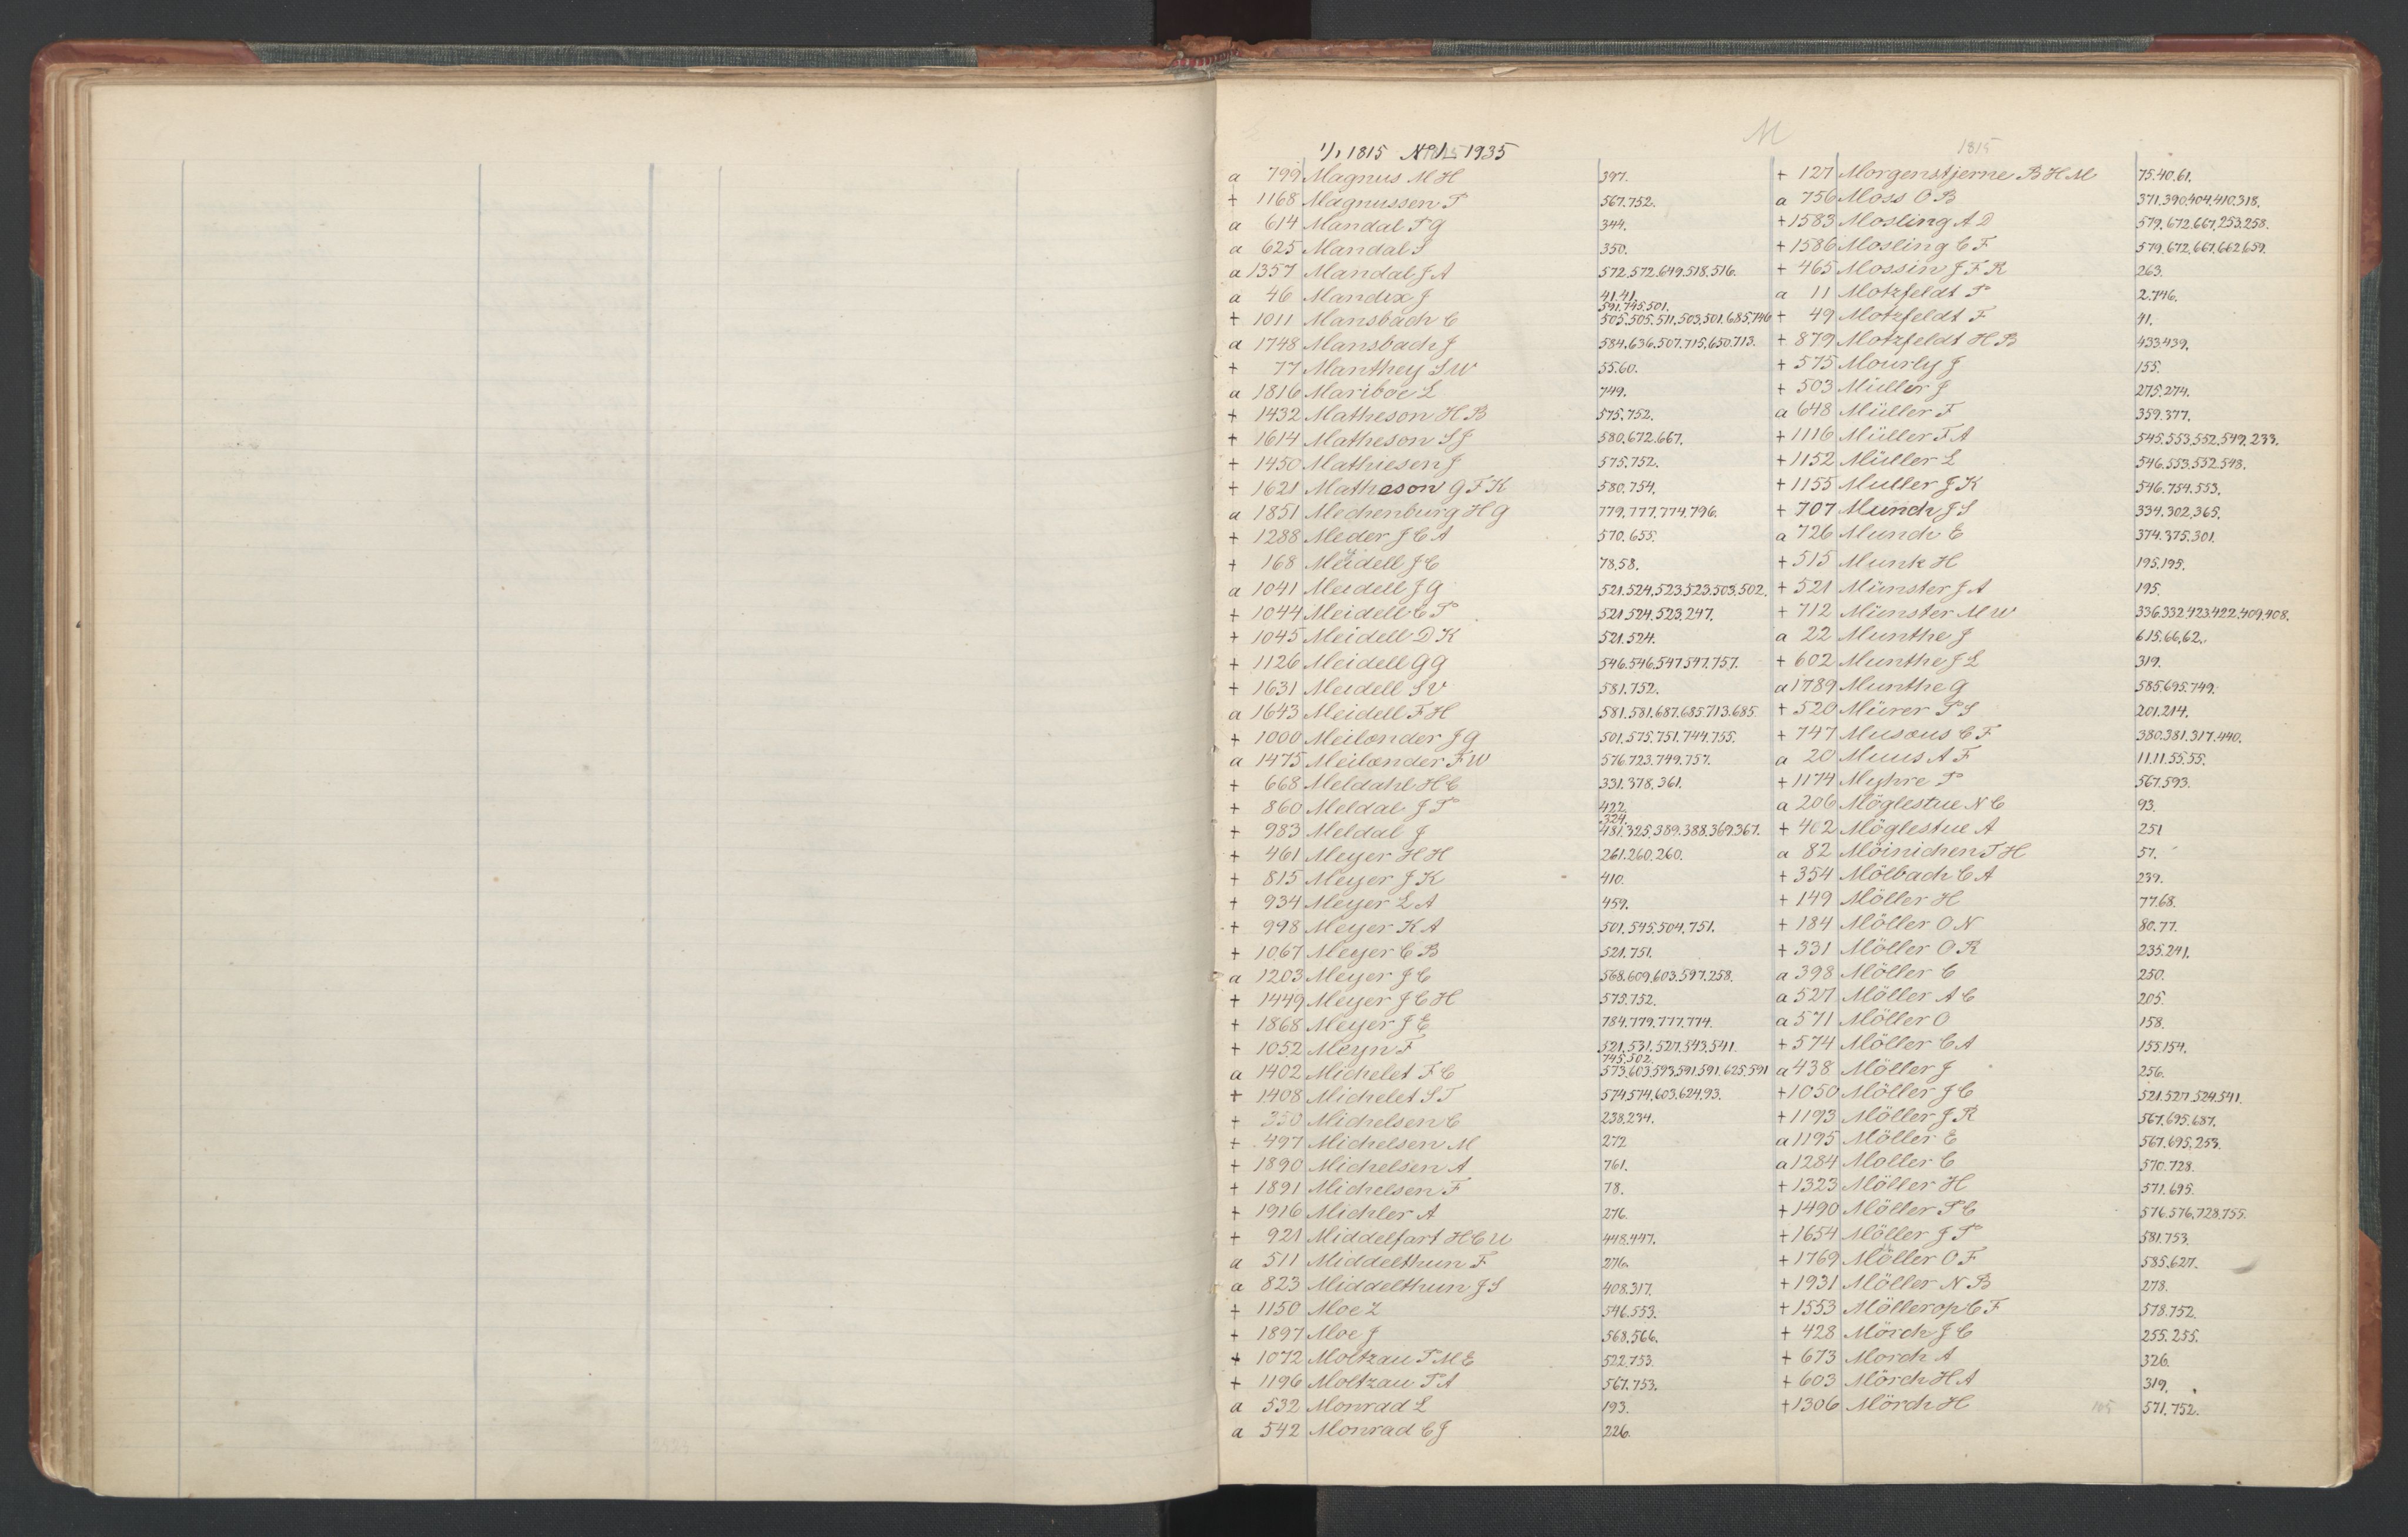 M
1/1 1815 1935
1815
a 799 Magnus M H 397.
+ 1168 Magnussen P 567.752.
a 614 Mandal P G 344.
a 625 Mandal S 350.
a 1357 Mandal J A 572.572.649.518.516.
a 46 Mandix J 41.41.
591.745.501.
+ 1011 Mansbach C 505.505.511.503.501.685.746
a 1748 Mansbach J 584.636.507.715.650.713.
+ 77 Manthey S W 55.60.
a 1816 Mariboe L 749.
+ 1432 Matheson H B 575.752.
+ 1614 Matheson S J 580.672.667.
+ 1450 Mathiesen J 575.752.
+ 1621 Matheson G F K 580.754.
a 1851 Mechenburg H G 779.777.774.796.
+ 1288 Meder J C A 570.655.
+ 168 Meidell J C 78.58.
a 1041 Meidell J G 521.524.523.523.503.502.
+ 1044 Meidell C P 521.524.523.247.
+ 1045 Meidell D K 521.524.
+ 1126 Meidell G G 546.546.547.547.757.
+ 1631 Meidell S V 581.752.
a 1643 Meidell F H 581.581.687.685.713.685.
+ 1000 Meilænder J G 501.575.751.744.755.
a 1475 Meilænder F W 576.723.749.757.
+ 668 Meldahl H C 331.378.361.
+ 860 Meldal J P 422.
324.
+ 983 Meldal J 481.325.389.388.369.367.
+ 461 Meyer H H 261.260.260.
+ 815 Meyer J K 410.
+ 934 Meyer L A 459.
+ 998 Meyer K A 501.545.504.751.
+ 1067 Meyer C B 521.751.
a 1203 Meyer J C 568.609.603.597.258.
+ 1449 Meyer J C H 575.752.
+ 1868 Meyer J E 784.779.777.774.
+ 1052 Meyn F 521.531.527.543.541.
745.502.
a 1402 Michelet F C 573.603.593.591.591.625.591
+ 1408 Michelet S T 574.574.603.624.93.
+ 350 Michelsen C 238.234.
+ 497 Michelsen M 272
+ 1890 Michelsen A 761.
+ 1891 Michelsen F 78.
+ 1916 Michler A 276.
+ 921 Middelfart H C U 448.447.
a 511 Middelthun F 276.
a 823 Middelthun J S 408.317.
+ 1150 Moe L 546.553.
+ 1897 Moe J 568.566.
+ 1072 Moltzau P M E 522.753.
+ 1196 Moltzau P A 567.753.
a 532 Monrad L 193.
a 542 Monrad C J 226.
+ 127 Morgenstjerne B H M 75.40.61.
a 756 Moss O B 371.390.404.410.318.
+ 1583 Mosling A D 579.672.667.253.258.
+ 1586 Mosling C F 579.672.667.662.659.
+ 465 Mossin J F R 263.
a 11 Motzfeldt P 2.746.
+ 49 Motzfeldt F 41.
+ 879 Motzfeldt H B 433.439.
+ 575 Mourly J 155.
+ 503 Müller J 275.274.
a 648 Müller F 359.377.
+ 1116 Müller F A 545.553.552.549.233.
+ 1152 Müller L 546.553.552.548.
+ 1155 Muller J K 546.754.553.
+ 707 Munch J S 334.302.365.
a 726 Munch E 374.375.301.
+ 515 Munk H 195.195.
+ 521 Münster J A 195.
+ 712 Münster M W 336.332.423.422.409.408.
a 22 Munthe J 615.66.62.
+ 602 Munthe J L 319.
a 1789 Munthe G 585.695.749.
+ 520 Mürer P S 201.214.
+ 747 Musæus C F 380.381.317.440.
a 20 Muus A F 11.11.55.55.
+ 1174 Myhre P 567.593.
a 206 Möglestue N C 93.
+ 402 Möglestue A 251
a 82 Möinichen T H 57.
+ 354 Mölbach C A 239.
+ 149 Möller H 77.68.
+ 184 Möller O N 80.77.
+ 331 Möller O R 235.241.
a 398 Möller C 250.
a 527 Möller A C 205.
a 571 Möller O 158.
+ 574 Möller C A 155.154.
a 438 Möller J 256.
+ 1050 Möller J C 521.527.524.541.
+ 1193 Möller J R 567.695.687.
a 1195 Möller E 567.695.253.
a 1284 Moller C 570.728.
+ 1323 Möller H 571.695.
+ 1490 Möller P C 576.576.728.755.
+ 1654 Möller J P 581.753.
+ 1769 Möller O F 585.627.
+ 1931 Möller N B 278.
+ 1553 Mölleropp C F 578.752.
+ 428 Mörch J C 255.255.
+ 673 Morch A 326.
+ 603 Mörch H A 319.
+ 1306 Mörch H 571.752.
105